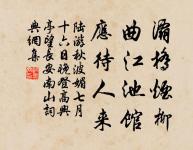 灞橋煙柳
曲江池館
應待人来
陸游秋波媚七月
十六日晚登高興
亭望長安南山詞
集